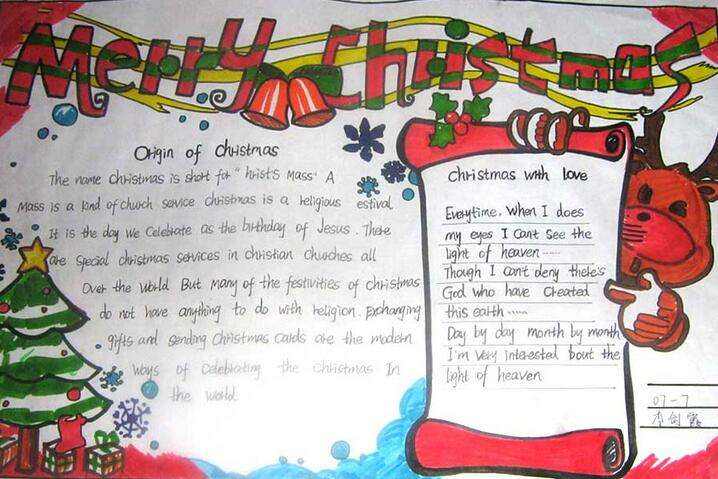 Merry Christmas
Origin of christmas
The name christmas is short for "hrist's mass". A
mass is a kind of church service christmas is a religious estival
It is the day we celebrate as the birthday of Jesus. There
are special christmas services in christian churches all
Over the world But many of the festivities of christmas
do not have anything to do with religion. Exchanging
gifts and sending christmas cards are the modern
ways of Celebrating the christmas In
the world
christmas with love
Everytime, When I does
my eyes I Cant See the
light of heaven ......
Though I can't deny there's
God who have created
this earth .....
Day by day month by month
I'm very interested bout the
light of heaven
07-7
李剑